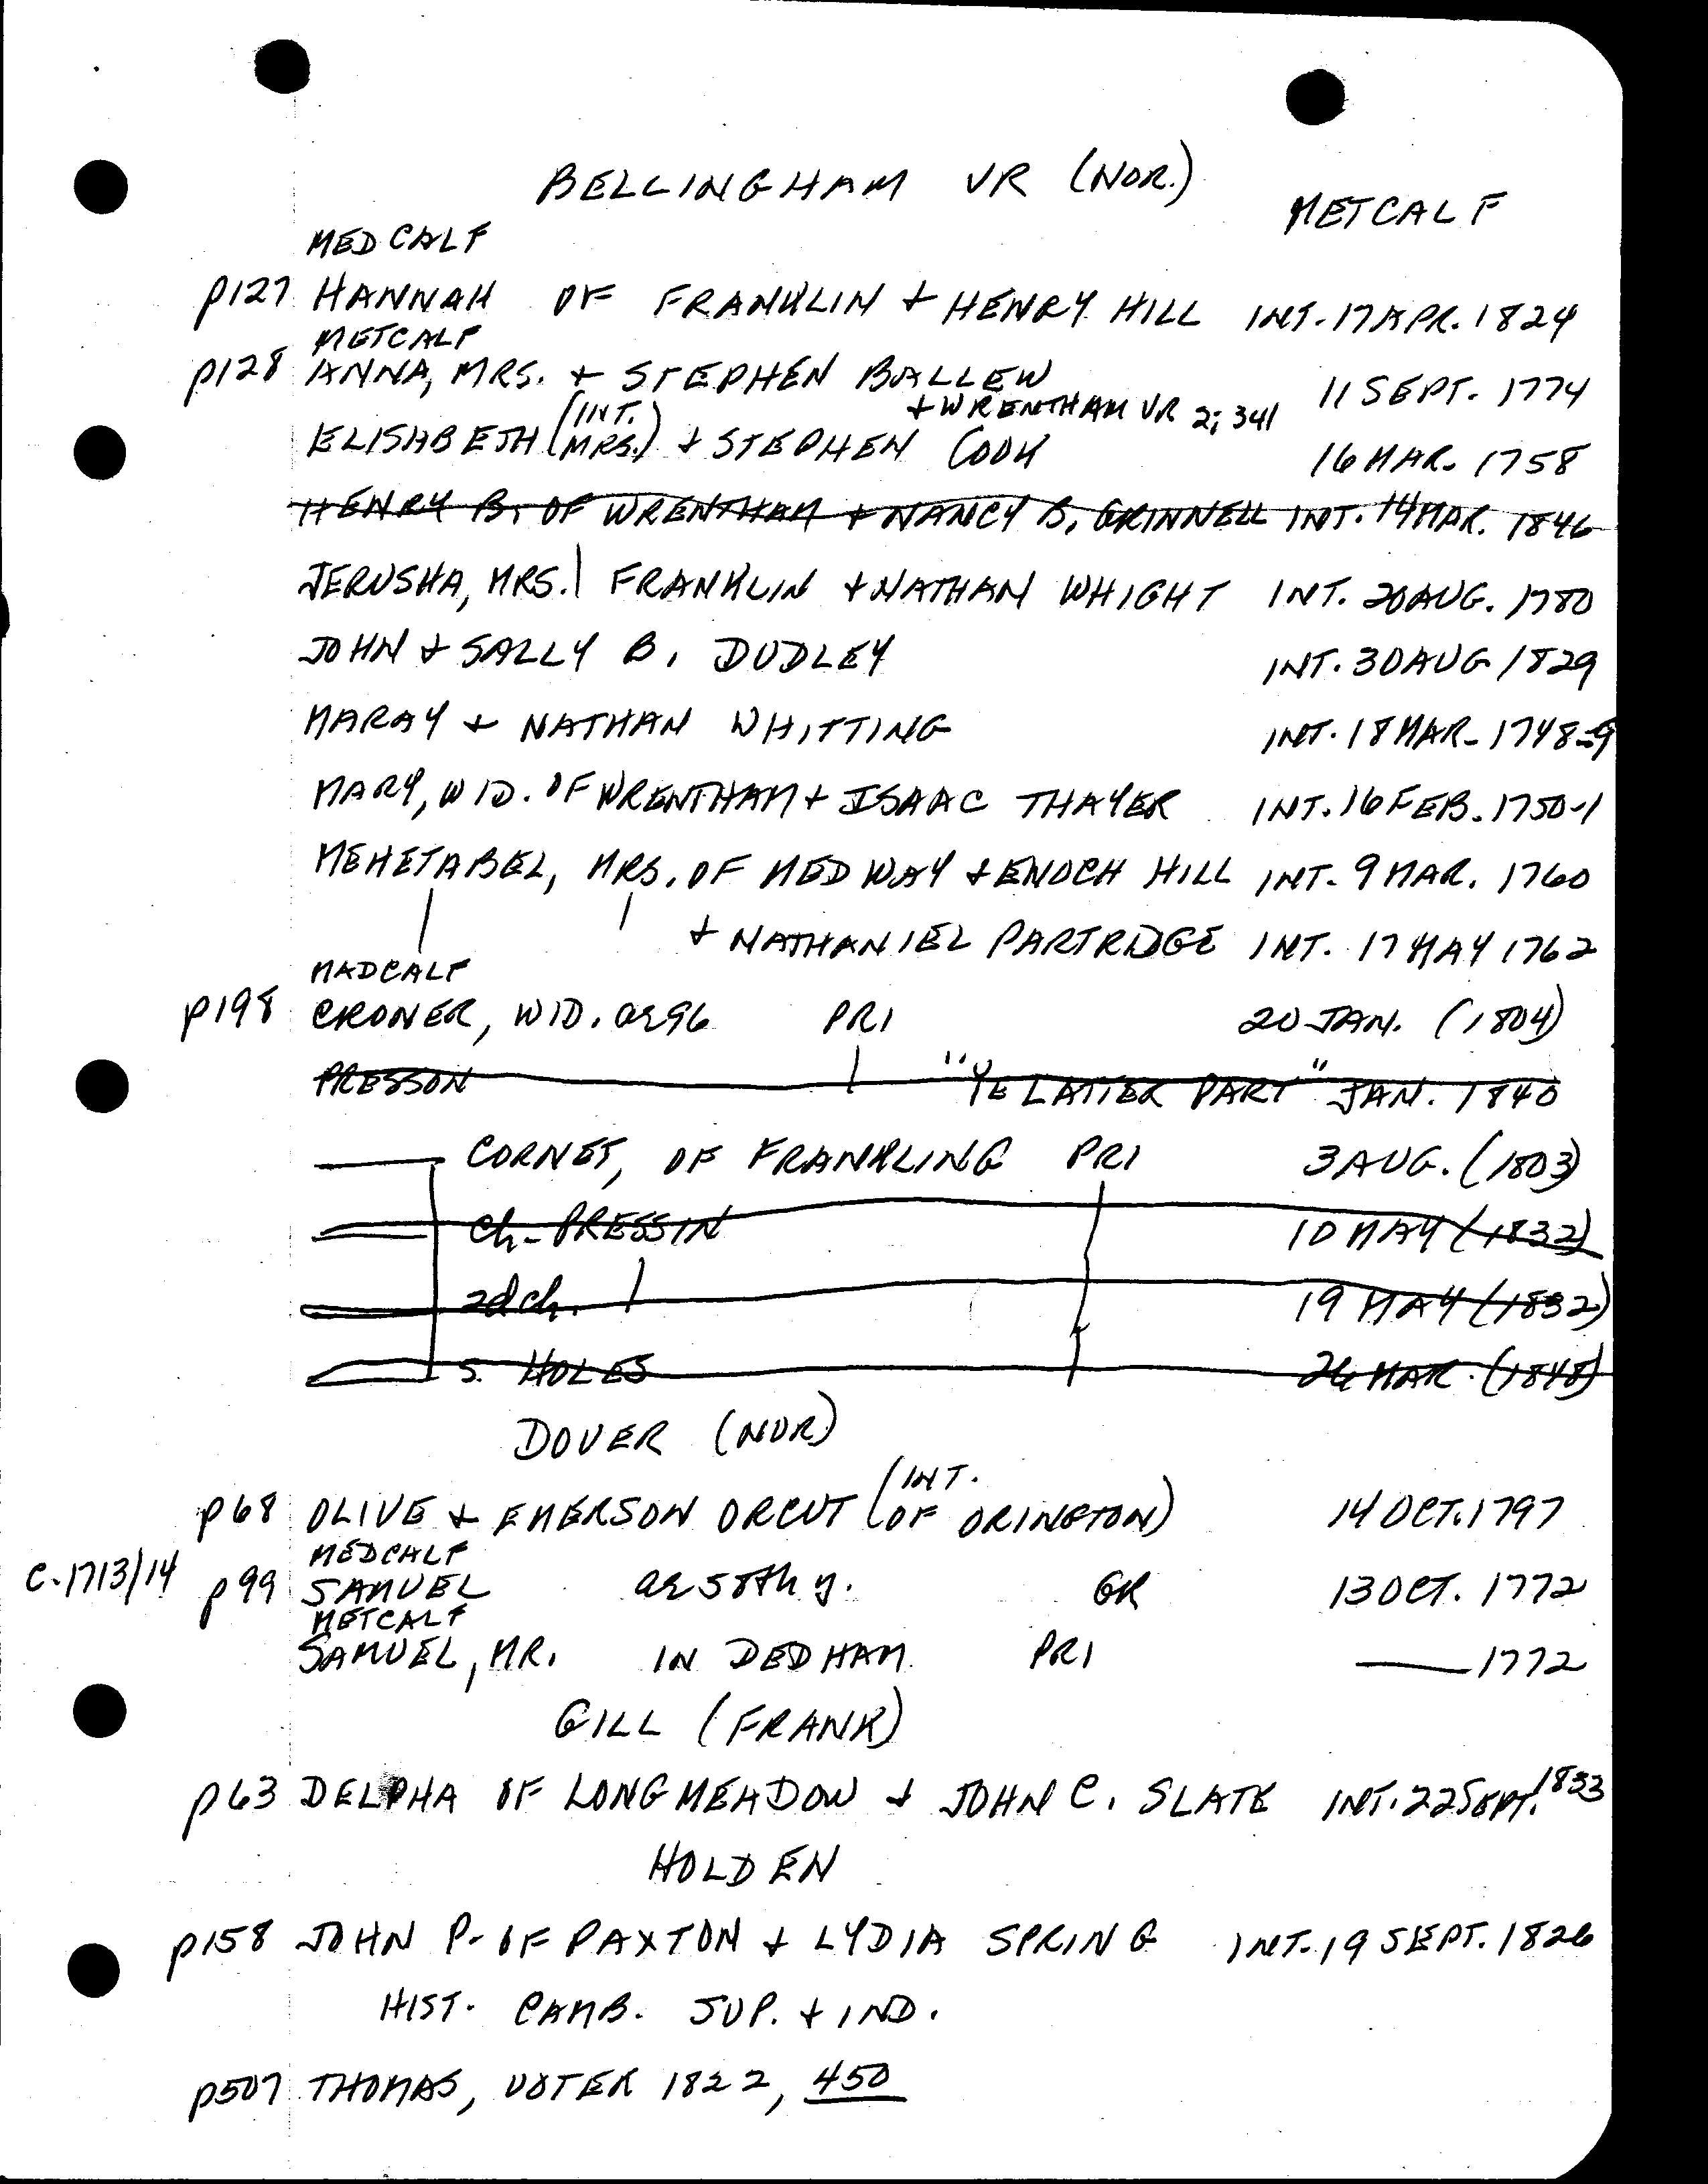 BELLINGHAM VR (NOR.)
METCALF
MEDCALF
p127 HANNAH OF FRANKLIN + HENRY HILL INT. 17 APR. 1824
METCALF
p128 ANNA, MRS. + STEPHEN BALLEW 11 SEPT. 1774
+ WRENTHAM VR 2; 341
ELISABETH (INT. MRS.) + STEPHEN COOK 16 MAR. 1758
HENRY B. OF WRENTHAM + NANCY B. GRINNELL INT. 14 MAR. 1846
JERUSHA, MRS. | FRANKLIN + NATHAN WHIGHT INT. 20 AUG. 1780
JOHN + SALLY B. DUDLEY INT. 30 AUG 1829
MARAY + NATHAN WHITTING INT. 18 MAR. 1748-9
MARY, WID. OF WRENTHAM + ISAAC THAYER INT. 16 FEB. 1750-1
MEHETABEL, MRS. OF MEDWAY + ENOCH HILL INT. 9 MAR. 1760
+ NATHANIEL PARTRIDGE INT. 17 MAY 1762
MADCALF
p198 CRONER, WID. ae 96 PRI 20 JAN. (1804)
PRESSON "YE LATTER PART" JAN. 1840
—— CORNET, OF FRANKLING PRI 3 AUG. (1803)
—— ch. PRESSIN 10 MAY (1832)
—— 2d ch. 19 MAY (1832)
—— S. HOLES 26 MAR. (1848)
DOVER (NOR.)
p68 OLIVE + EMERSON ORCUT (INT. OF ORINGTON) 14 OCT. 1797
MEDCALF
C. 1713/14 p99 SAMUEL ae 58th y. GR 13 OCT. 1772
METCALF
SAMUEL, MR. IN DEDHAM PRI —— 1772
GILL (FRANK)
p63 DELPHA OF LONGMEADOW + JOHN C. SLATE INT. 22 SEPT. 1833
HOLDEN
p158 JOHN P. OF PAXTON + LYDIA SPRING INT. 19 SEPT. 1826
HIST. CAMB. SUP. + IND.
p507 THOMAS, VOTER 1822, 450